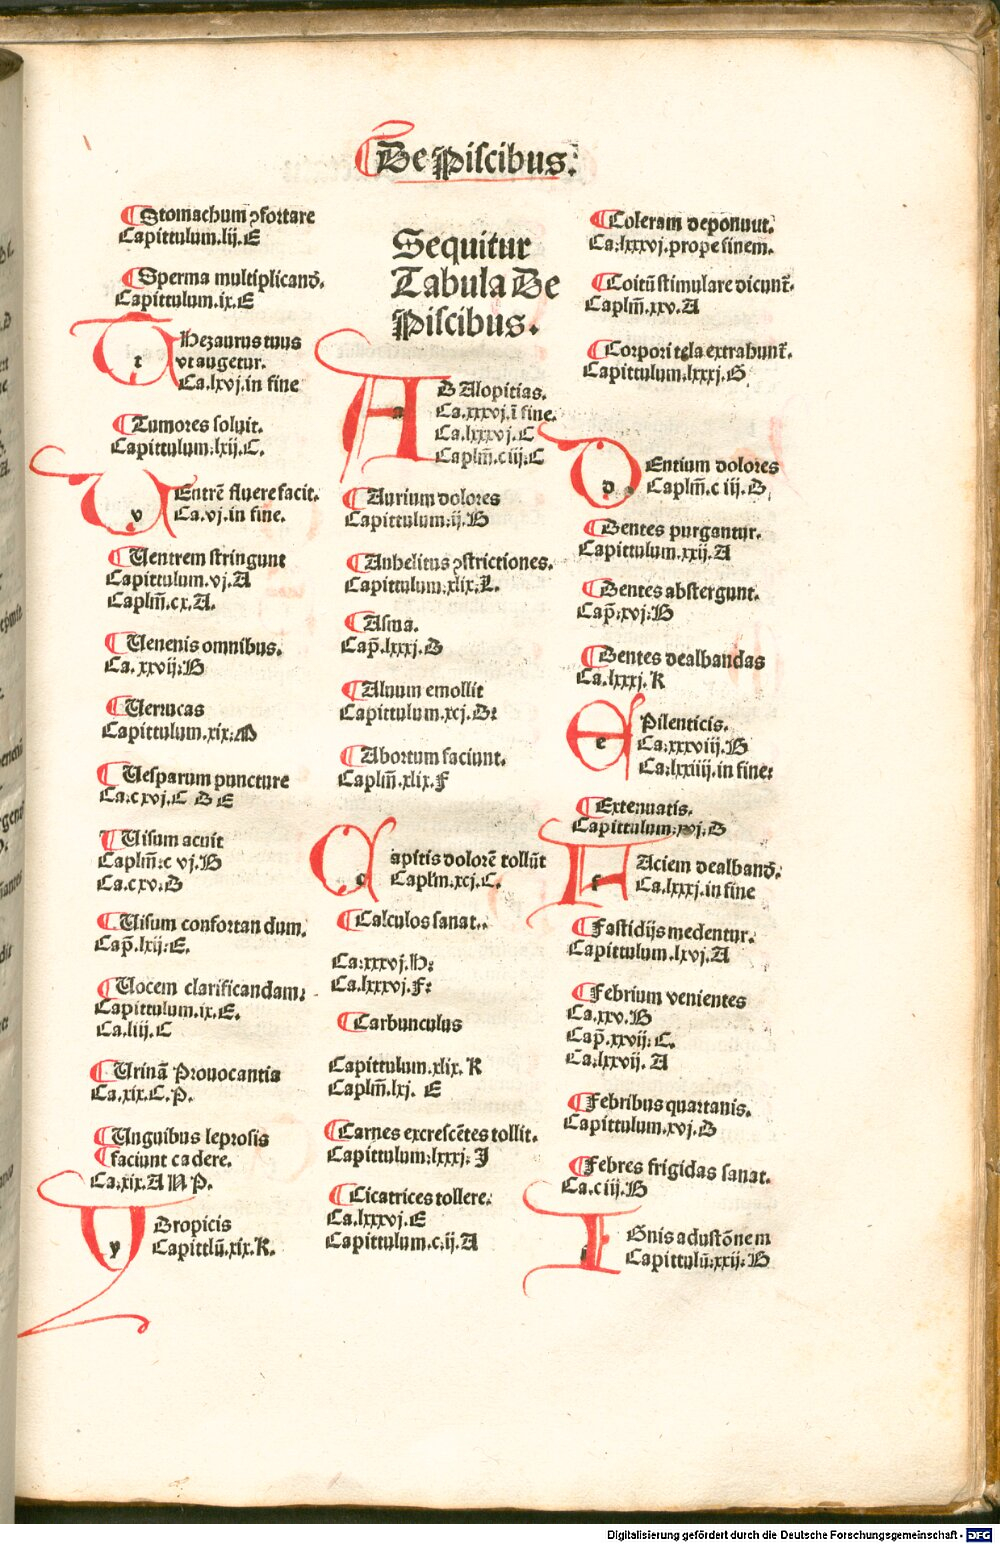 De Piscibus.
Stomachum ↄfortare
Capittulum.lij.E
Sperma multiplicand̄.
Capittulum.ix.E
Thezaurus tuus
vt augetur.
Ca.lxvj.in fine
Tumores soluit.
Capittulum.lxij.C.
Uentrē fluere facit.
Ca.vj.in fine.
Uentrem stringunt
Capittulum.vj.A
Caplm̄.cx.A.
Uenenis omnibus.
Ca.xxvij.B
Uerrucas
Capittulum.xix.M
Uesparum puncture
Ca.cxvj.C D E
Uisum acuit
Caplm̄.c vj.B
Ca.cxv.D
Uisum confortan dum.
Cap̄.lxij.E.
Uocem clarificandam.
Capittulum.ix.E.
Ca.liij.C
Urinā Prouocantia
Ca.xix.C.P.
Unguibus leprosis
faciunt cadere.
Ca.xix.A N P.
Ydropicis
Capittlū.xix.K.
Sequitur
Tabula De
Piscibus.
AD Alopitias.
Ca.xxxvj.ī fine.
Ca.lxxxvj.C
Caplm̄.ciij.C
Aurium dolores
Capittulum.ij.B
Anhelitus ↄstrictiones.
Capittulum.xlix.L.
Asma.
Cap̄.lxxxj.D
Aluum emollit
Capittulum.xcj.D:
Abortum faciunt.
Caplm̄.xlix.F
Capitis dolorē tollūt
Caplm̄.xcj.C.
Calculos sanat..
Ca.xxxvj.H:
Ca.lxxxvj.F:
Carbunculus
Capittulum.xlix.K
Caplm̄.lxj. E
Carnes excrescētes tollit.
Capittulum.lxxxj.J
Cicatrices tollere.
Ca.lxxxvj.E
Capittulum.c.ij.A
Coleram deponunt.
Ca.lxxxvj.prope finem.
Coitū stimulare dicunt᷑.
Caplm̄.xxv.A
Corpori tela extrahunt᷑.
Capittulum.lxxxj.G
Dentium dolores
Caplm̄.c iij.D
Dentes purgantur.
Capittulum.xxij.A
Dentes abstergunt.
Cap̄.xvj.B
Dentes dealbandas
Ca.lxxxj.K
EPilenticis.
Ca.xxxviij.B
Ca.lxxiiij.in fine:
Extenuatis.
Capittulum.xvj.D
FAciem dealband̄.
Ca.lxxxj.in fine
Fastidijs medentur.
Capittulum.lxvj.A
Febrium venientes
Ca.xxv.B
Cap̄.xxvij.C.
Ca.lxxvij.A
Febribus quartanis.
Capittulum.xvj.D
Febres frigidas sanat.
Ca.ciij.B
IGnis adustōnem
Capittulū.xxij.B
Digitalisierung gefördert durch die Deutsche Forschungsgemeinschaft - DFG